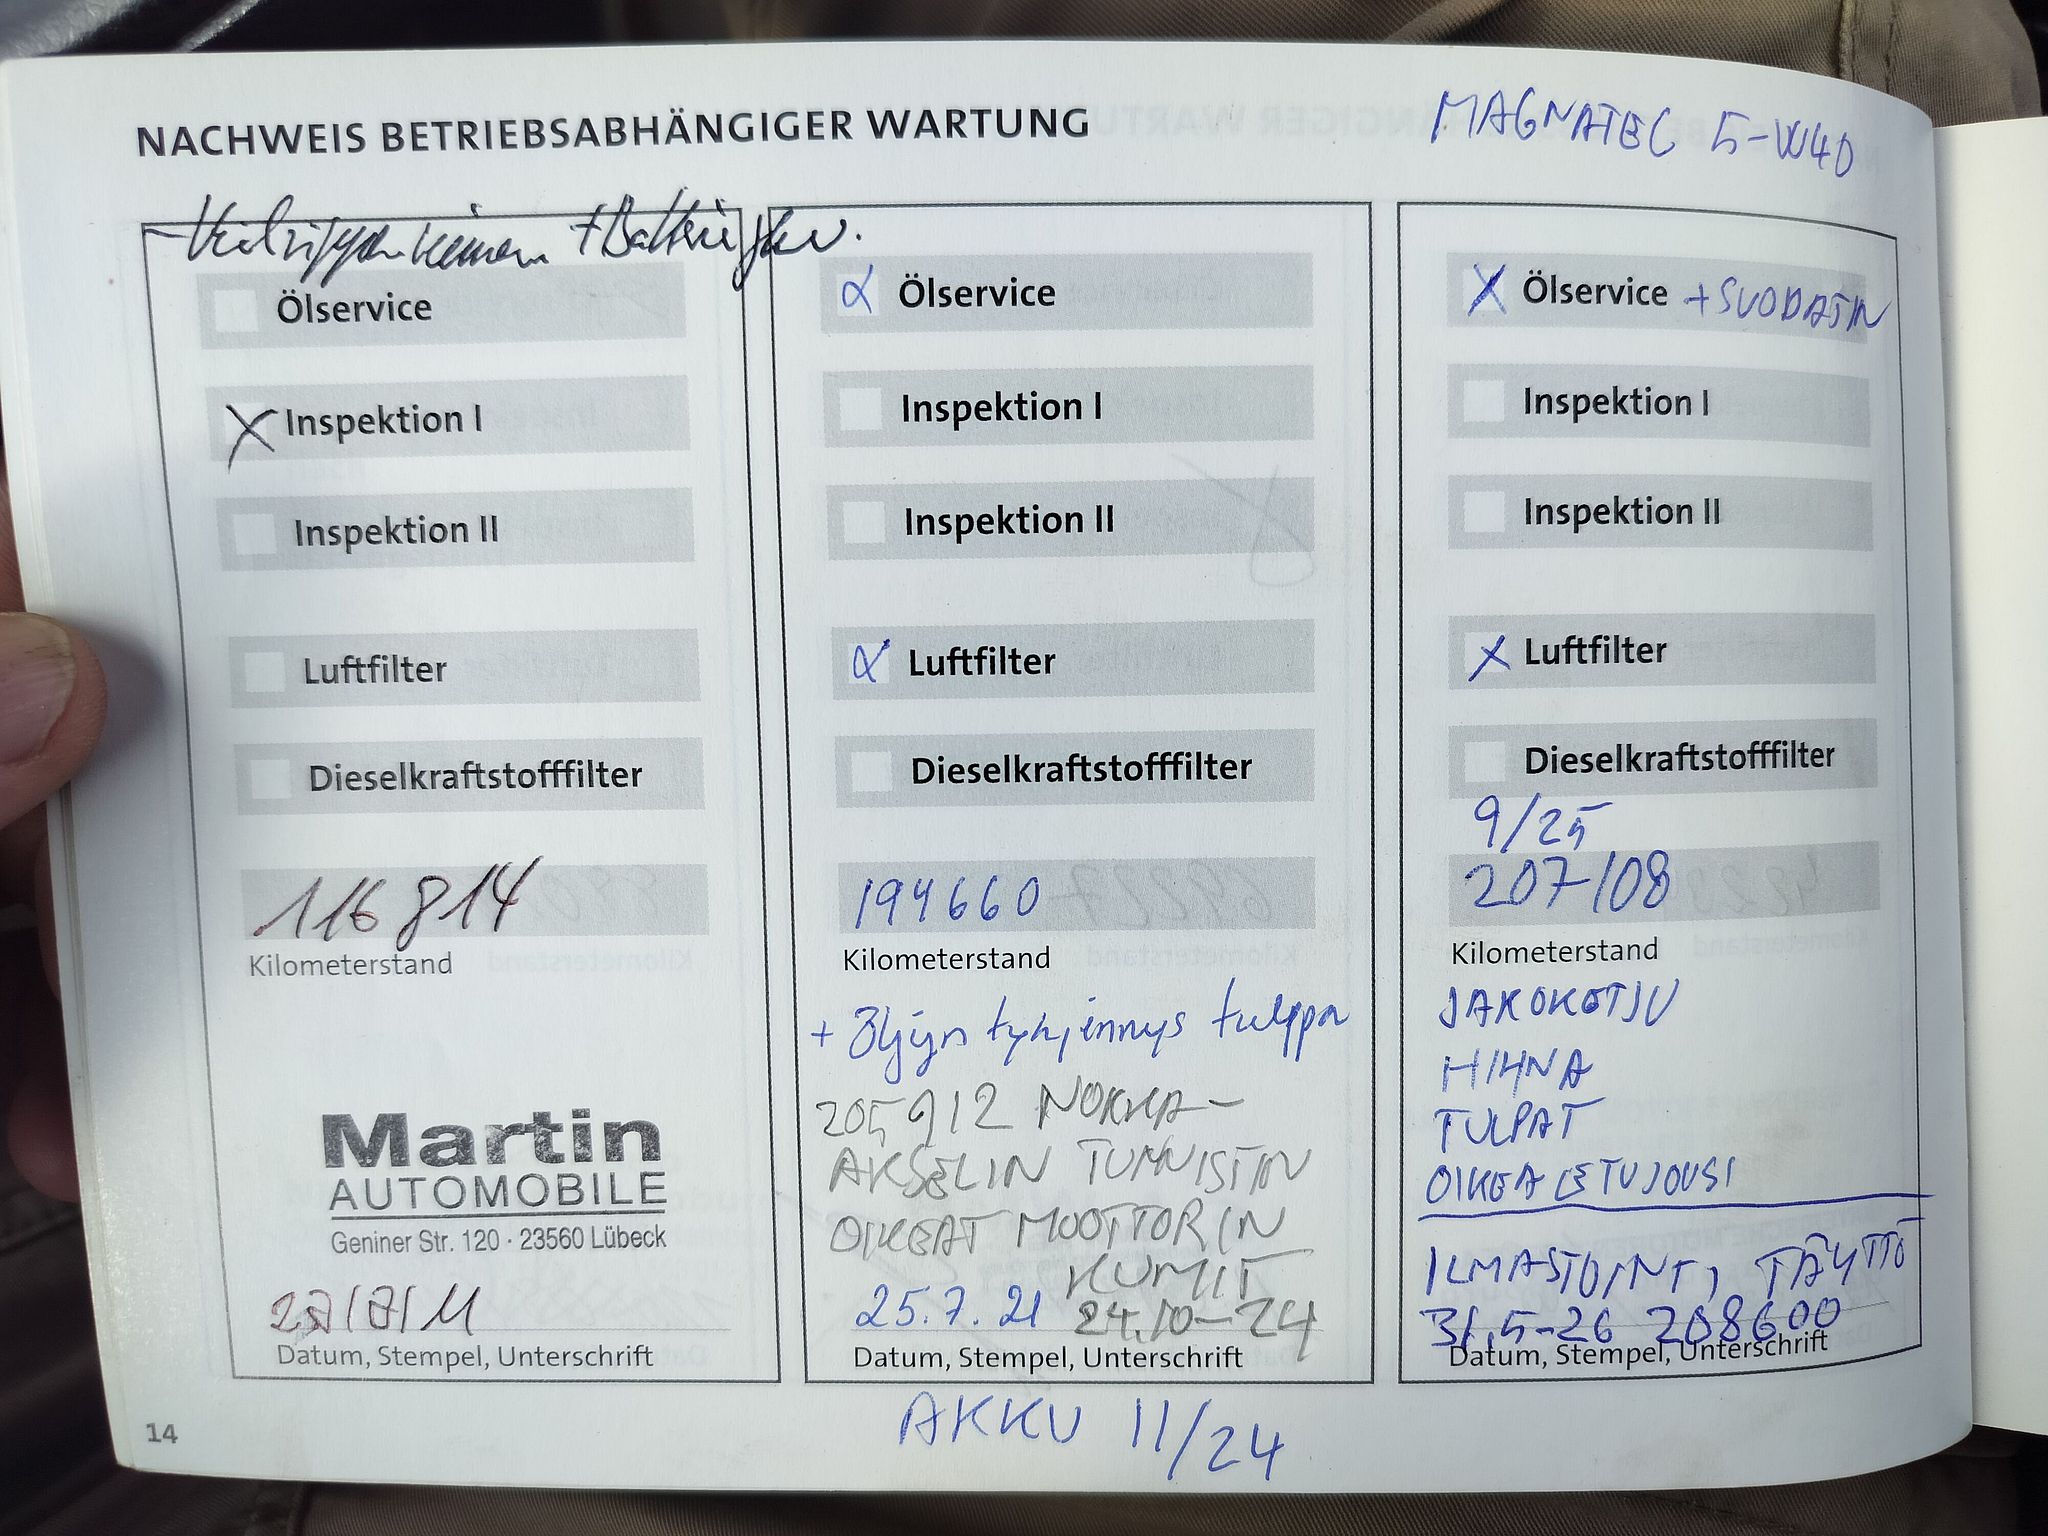 NACHWEIS BETRIEBSABHÄNGIGER WARTUNG
MAGNATEC 5-W40
Ölservice
X Inspektion I
Inspektion II
Luftfilter
Dieselkraftstofffilter
116814
Kilometerstand
Martin
AUTOMOBILE
Geniner Str. 120 · 23560 Lübeck
Datum, Stempel, Unterschrift
14
Ölservice
Inspektion I
Inspektion II
Luftfilter
Dieselkraftstofffilter
194660
Kilometerstand
+ Öljyn tyhjennys tulppa
205912 NOKKA-
AKSELIN TUNNISTIN
OIKEAT MOOTTORIN
KUMIT
25.7.21 24.10-24
Datum, Stempel, Unterschrift
AKKU 11/24
X Ölservice +SUODATIN
Inspektion I
Inspektion II
X Luftfilter
Dieselkraftstofffilter
9/25
207108
Kilometerstand
JAKOKETJU
HIHNA
TULPAT
OIKEA ETUJOUSI
ILMASTOINT, TÄYTTÖ
31.5-26 208600
Datum, Stempel, Unterschrift